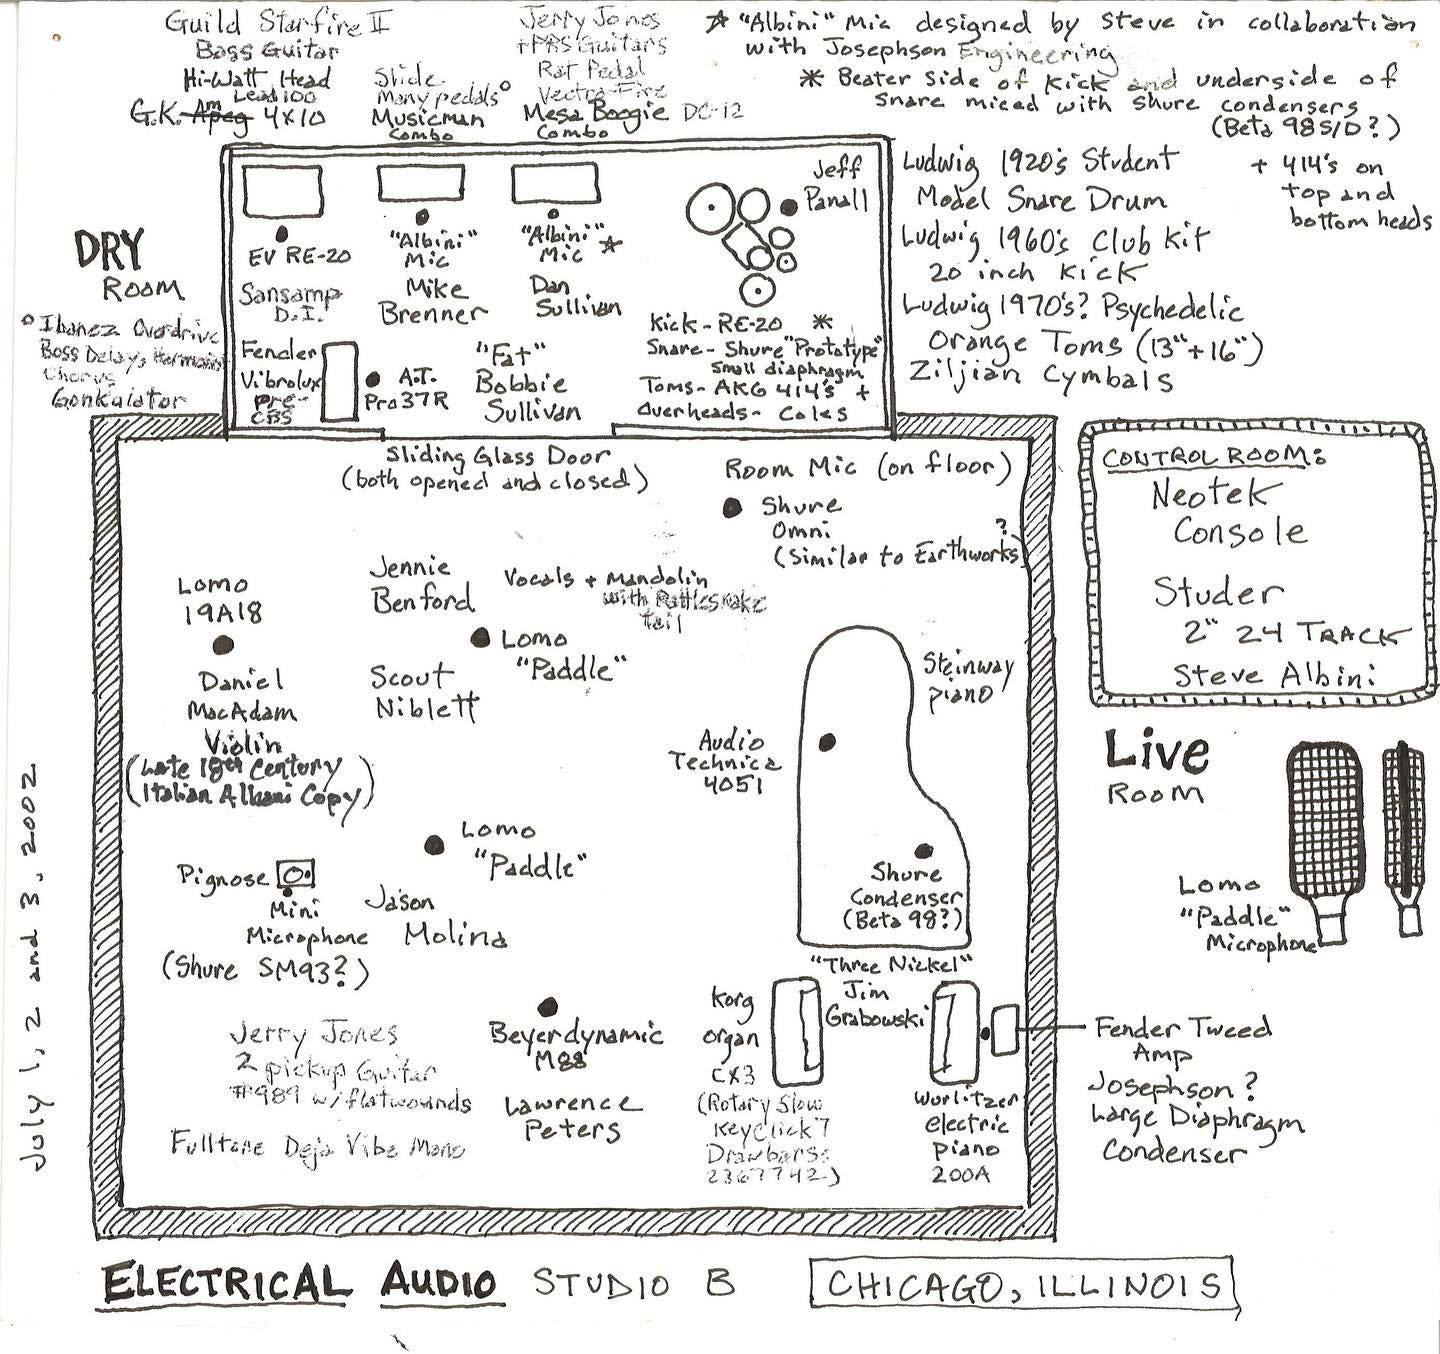 Guild Starfire II
Bass Guitar
Hi-Watt Head
Lead 100
G.K. Ampeg 4x10
Slide
Many pedals°
Musicman
Combo
Jerry Jones
+ PRS Guitars
Rat Pedal
Vectra-Fire
Mesa Boogie DC-12
Combo
☆ "Albini" Mic designed by Steve in collaboration
with Josephson Engineering
* Beater side of Kick and underside of
Snare miced with Shure condensers
(Beta 98 S/D?)
+ 414's on
top and
bottom heads
Ludwig 1920's Student
Model Snare Drum
Ludwig 1960's Club Kit
20 inch Kick
Ludwig 1970's? Psychedelic
Orange Toms (13"+16")
Ziljian Cymbals
DRY
ROOM
° Ibanez Overdrive
Boss Delay,
Chorus
Gonkulator
EV RE-20
Sansamp
D.I.
Fender
Vibrolux
pre-
CBS
A.T.
Pro37R
"Albini"
Mic
Mike
Brenner
"Albini" ☆
Mic
Dan
Sullivan
"Fat"
Bobbie
Sullivan
Jeff
Panall
Kick - RE-20 *
Snare - Shure "Prototype"
Small diaphragm
Toms - AKG 414's +
Overheads - Coles
Sliding Glass Door
(both opened and closed)
Room Mic (on floor)
Shure
Omni
(Similar to Earthworks?)
CONTROL ROOM:
Neotek
Console
Studer
2" 24 TRACK
Steve Albini
Lomo
19A18
Daniel
MacAdam
Violin
(Late 18th Century
Italian Albani Copy)
Jennie
Benford
Vocals + Mandolin
with Rattlesnake
tail
Lomo
"Paddle"
Scout
Niblett
Steinway
piano
Audio
Technica
4051
Shure
Condenser
(Beta 98?)
Live
ROOM
Lomo
"Paddle"
Microphone
Lomo
"Paddle"
Pignose
Mini
Microphone
(Shure SM93?)
Jason
Molina
Jerry Jones
2 pickup Guitar
#989 w/flatwounds
Fulltone Deja Vibe Mono
Beyerdynamic
M88
Lawrence
Peters
"Three Nickel"
Jim
Grabowski
Korg
organ
CX3
(Rotary Slow
Key Click 7
Drawbars:
2367742)
Wurlitzer
electric
piano
200A
Fender Tweed
Amp
Josephson?
Large Diaphragm
Condenser
July 1, 2 and 3, 2002
ELECTRICAL AUDIO STUDIO B
CHICAGO, ILLINOIS